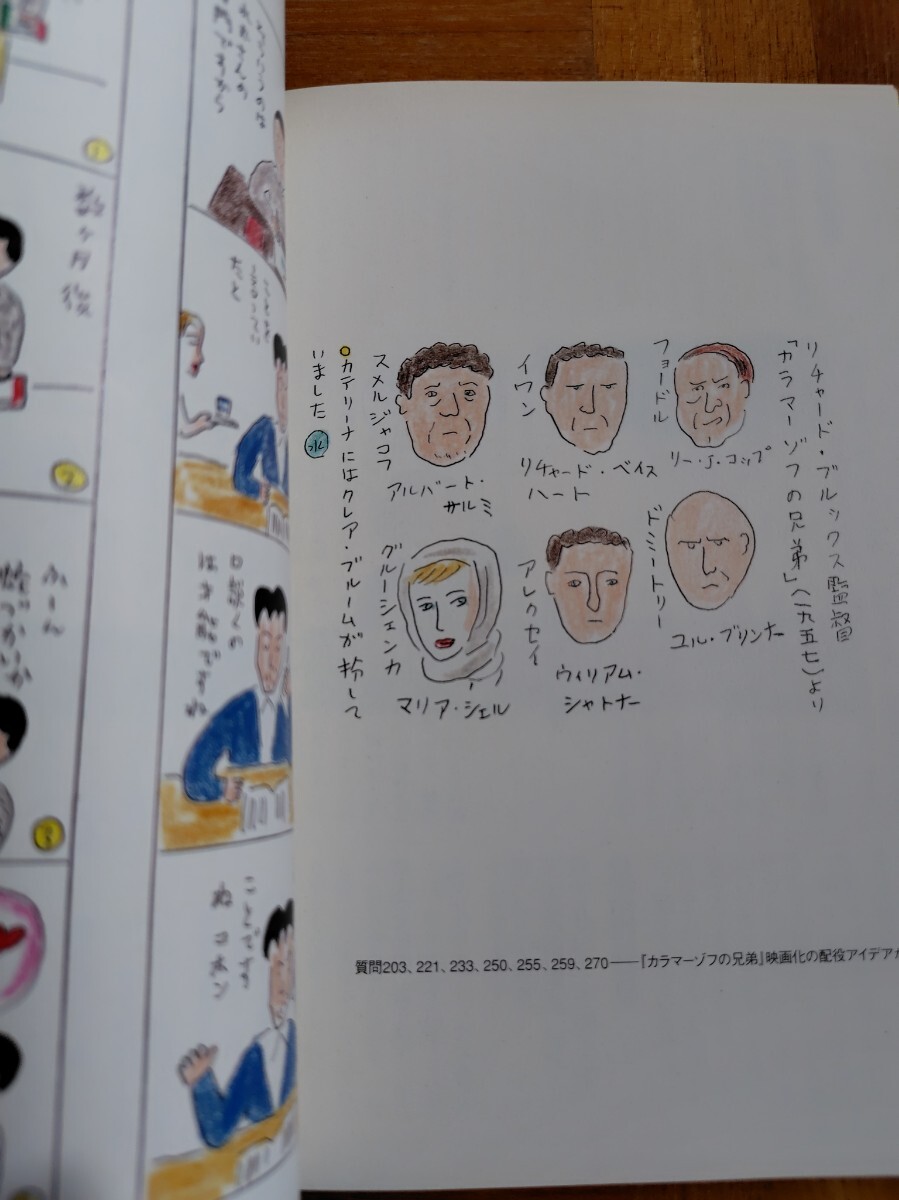 リチャード・ブルックス監督
「カラマーゾフの兄弟」(一九五七)より
フョードル
リー・J・コップ
イワン
リチャード・ベイス
ハート
スメルジャコフ
アルバート・
サルミ
ドミートリー
ユル・ブリンナー
アレクセイ
ウィリアム・
シャトナー
グルーシェンカ
マリア・シェル
カテリーナにはクレア・ブルームが扮して
いました
水
質問203、221、233、250、255、259、270——『カラマーゾフの兄弟』映画化の配役アイデアが
たと
口説くの
は才能ですね
ことです
ね コホン
1
数ヶ月後
2
ふーん
3